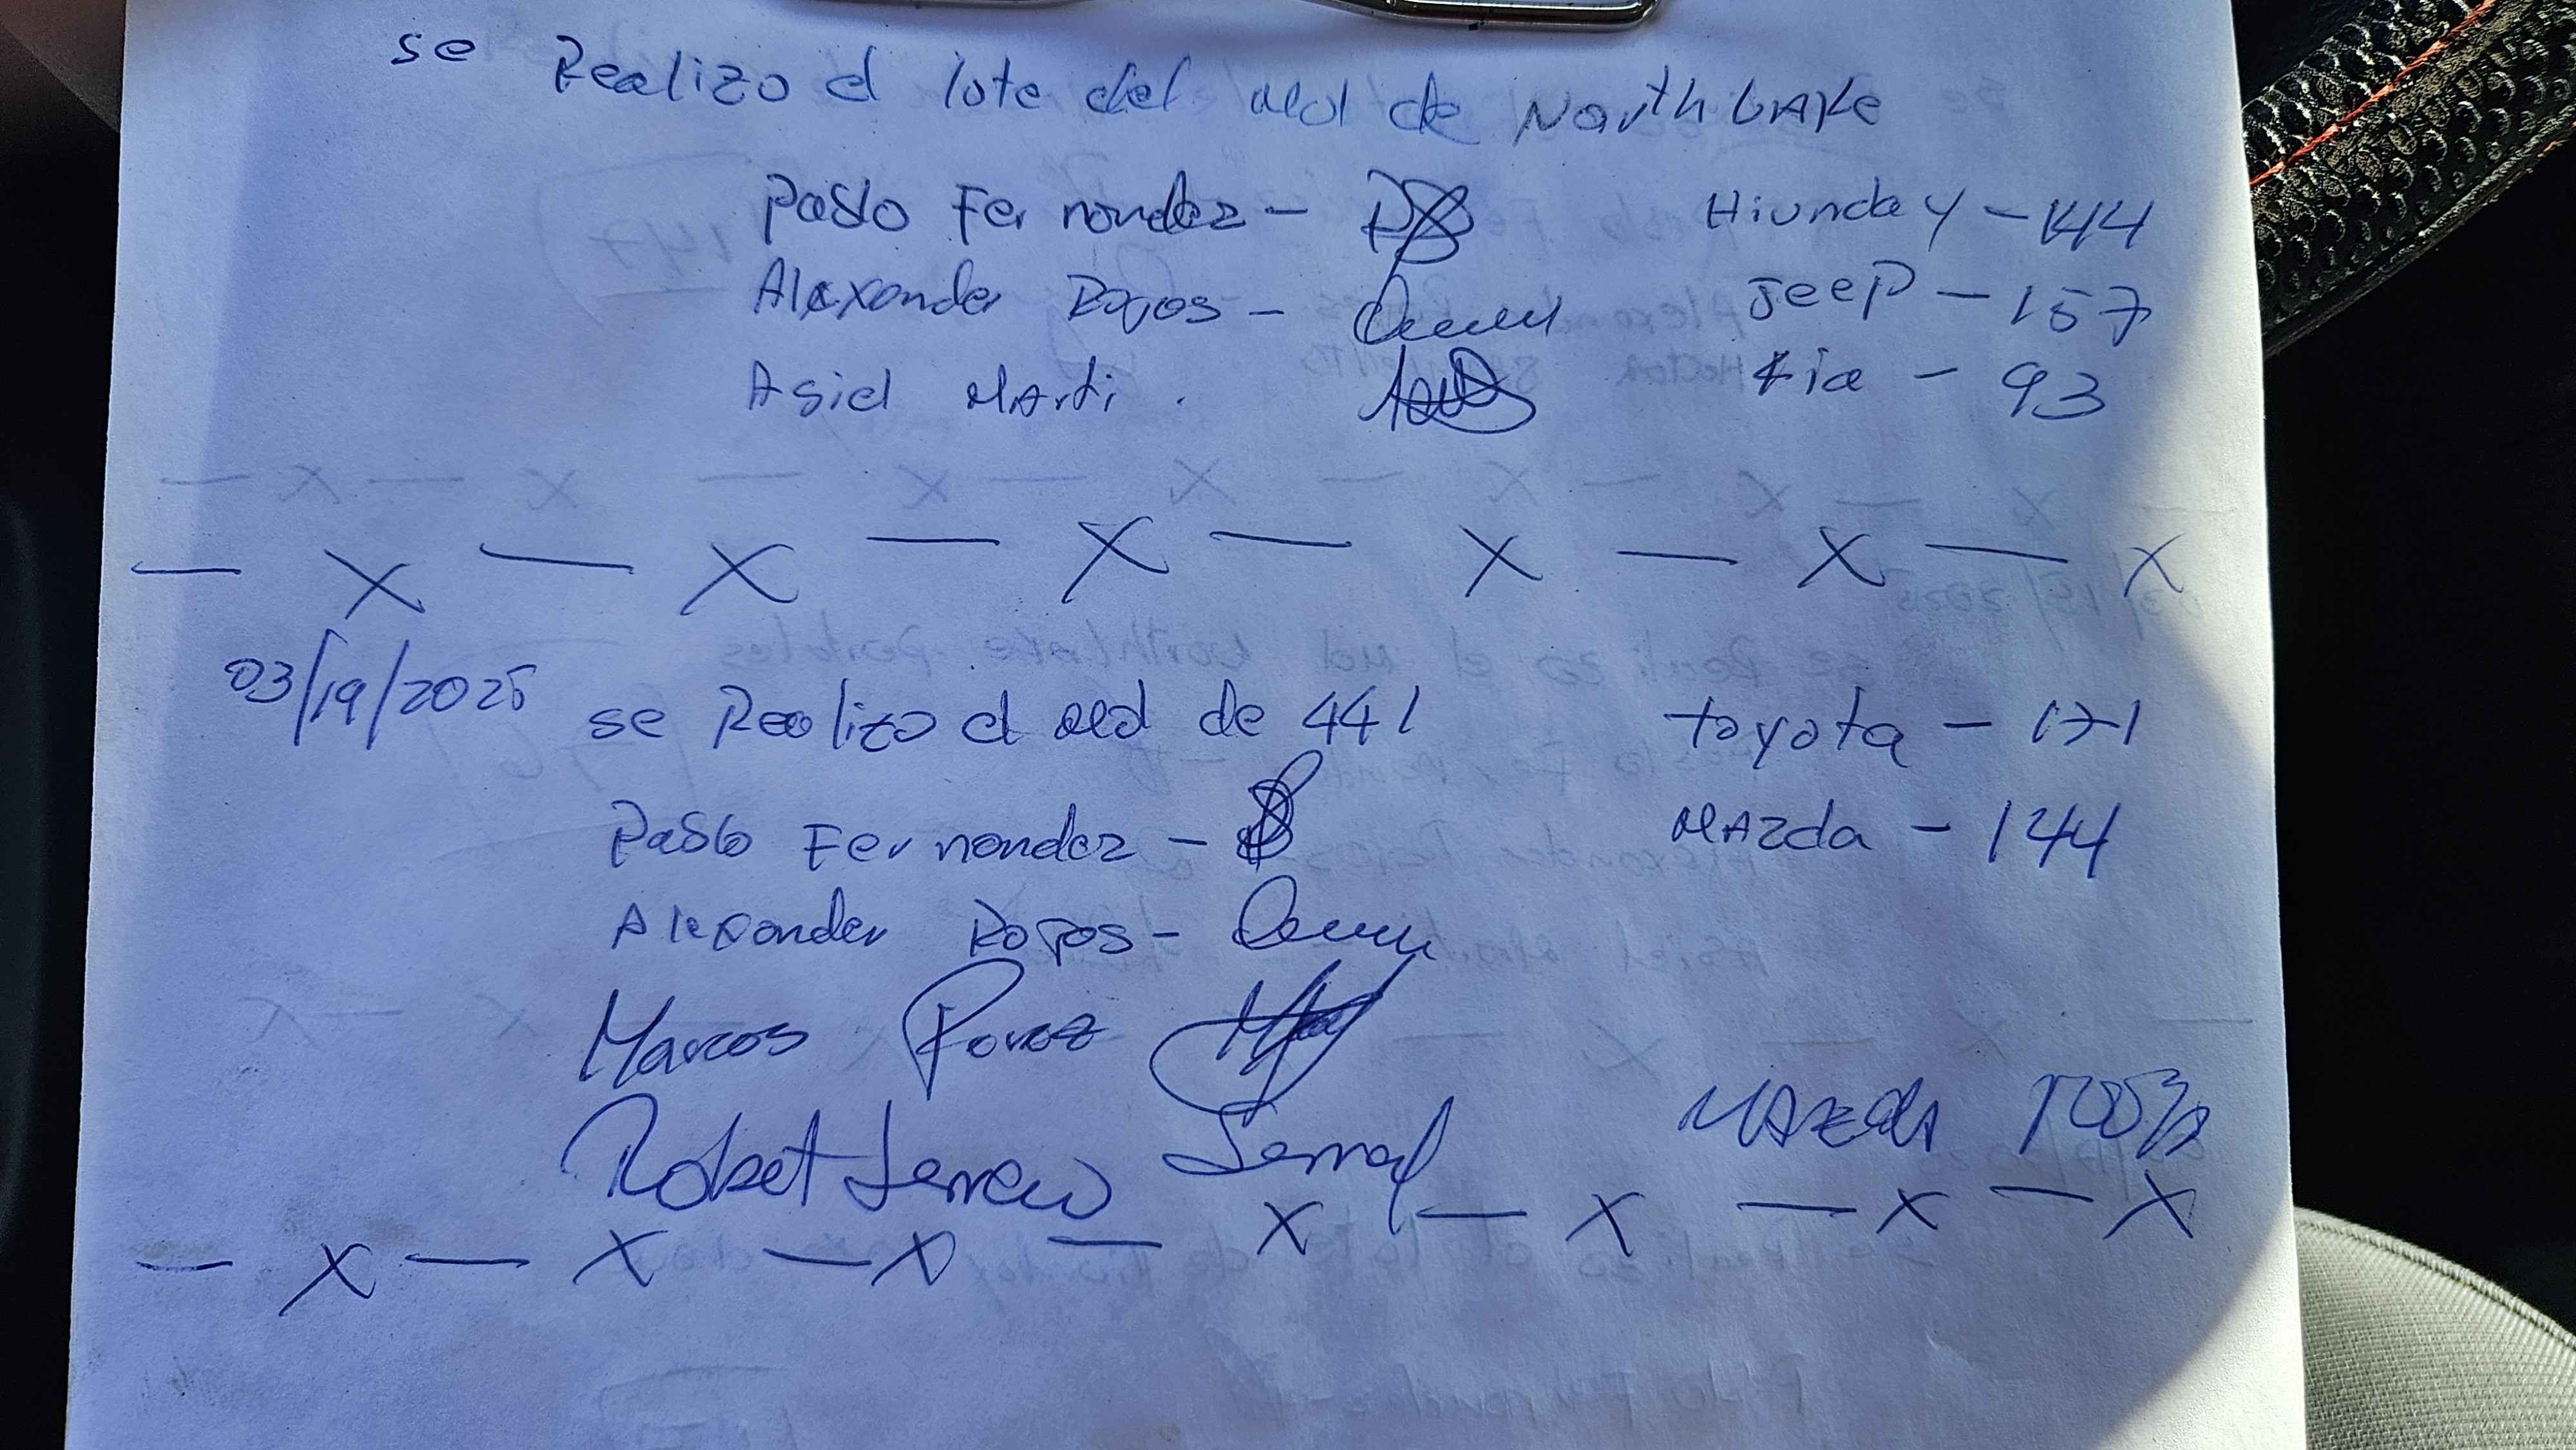 se Realizo el lote del Mol de NorthLAKe
Pablo Fernandez - Hiunday - 144
Alexander Rojos - Jeep - 157
Asiel Marti . Kia - 93
— X — X — X — X — X — X
03/19/2025
se Realizo el Mol de 441 toyota - 171
Pablo Fernandez - MAzda - 144
Alexander Rojos -
Marcos Perez
Robert MAZda
— X — X — X — X — X — X — X